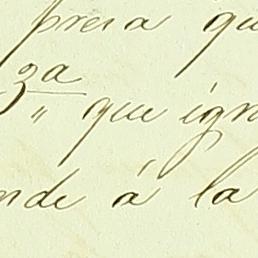 presa qu
3a " que ign
nde á la